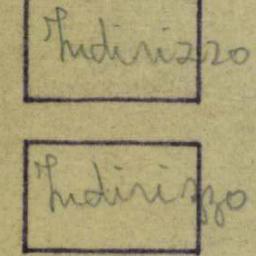 Indirizzo
Indirizzo